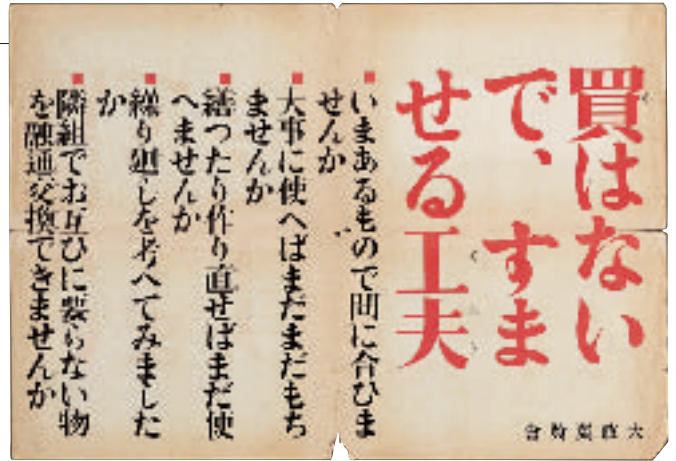 買はない
で、すま
せる工夫
■いまあるもので間に合ひま
せんか
■大事に使へばまだまだもち
ませんか
■繕つたり作り直せばまだ使
へませんか
■繰り廻しを考へてみました
か
■隣組でお互ひに要らない物
を融通交換できませんか